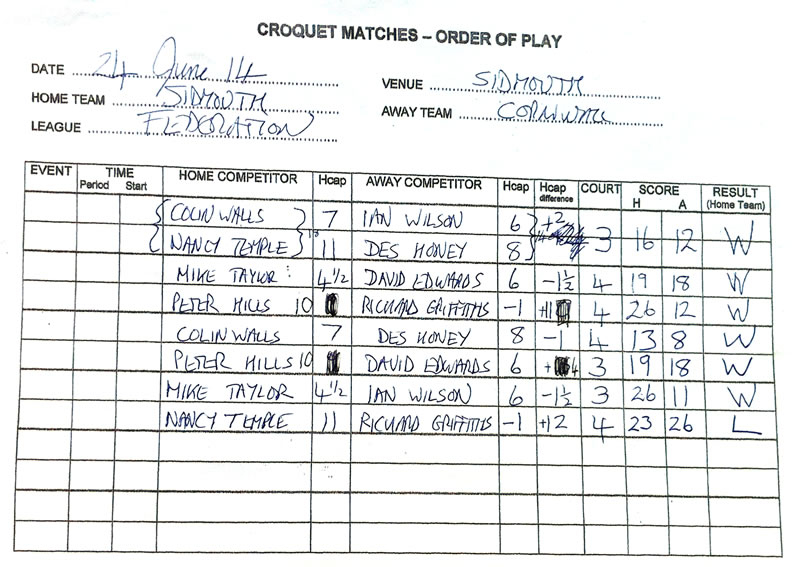 CROQUET MATCHES – ORDER OF PLAY
DATE 24 June 14
VENUE SIDMOUTH
HOME TEAM SIDMOUTH
AWAY TEAM CORNWALL
LEAGUE FEDERATION
EVENT TIME Period Start HOME COMPETITOR Hcap AWAY COMPETITOR Hcap Hcap difference COURT SCORE H A RESULT (Home Team)
COLIN WALLS 7 IAN WILSON 6 +2
NANCY TEMPLE 11 DES HONEY 8 3 16 12 W
MIKE TAYLOR 4 1/2 DAVID EDWARDS 6 -1 1/2 4 19 18 W
PETER HILLS 10 RICHARD GRIFFITHS -1 +11 4 26 12 W
COLIN WALLS 7 DES HONEY 8 -1 4 13 8 W
PETER HILLS 10 DAVID EDWARDS 6 +4 3 19 18 W
MIKE TAYLOR 4 1/2 IAN WILSON 6 -1 1/2 3 26 11 W
NANCY TEMPLE 11 RICHARD GRIFFITHS -1 +12 4 23 26 L